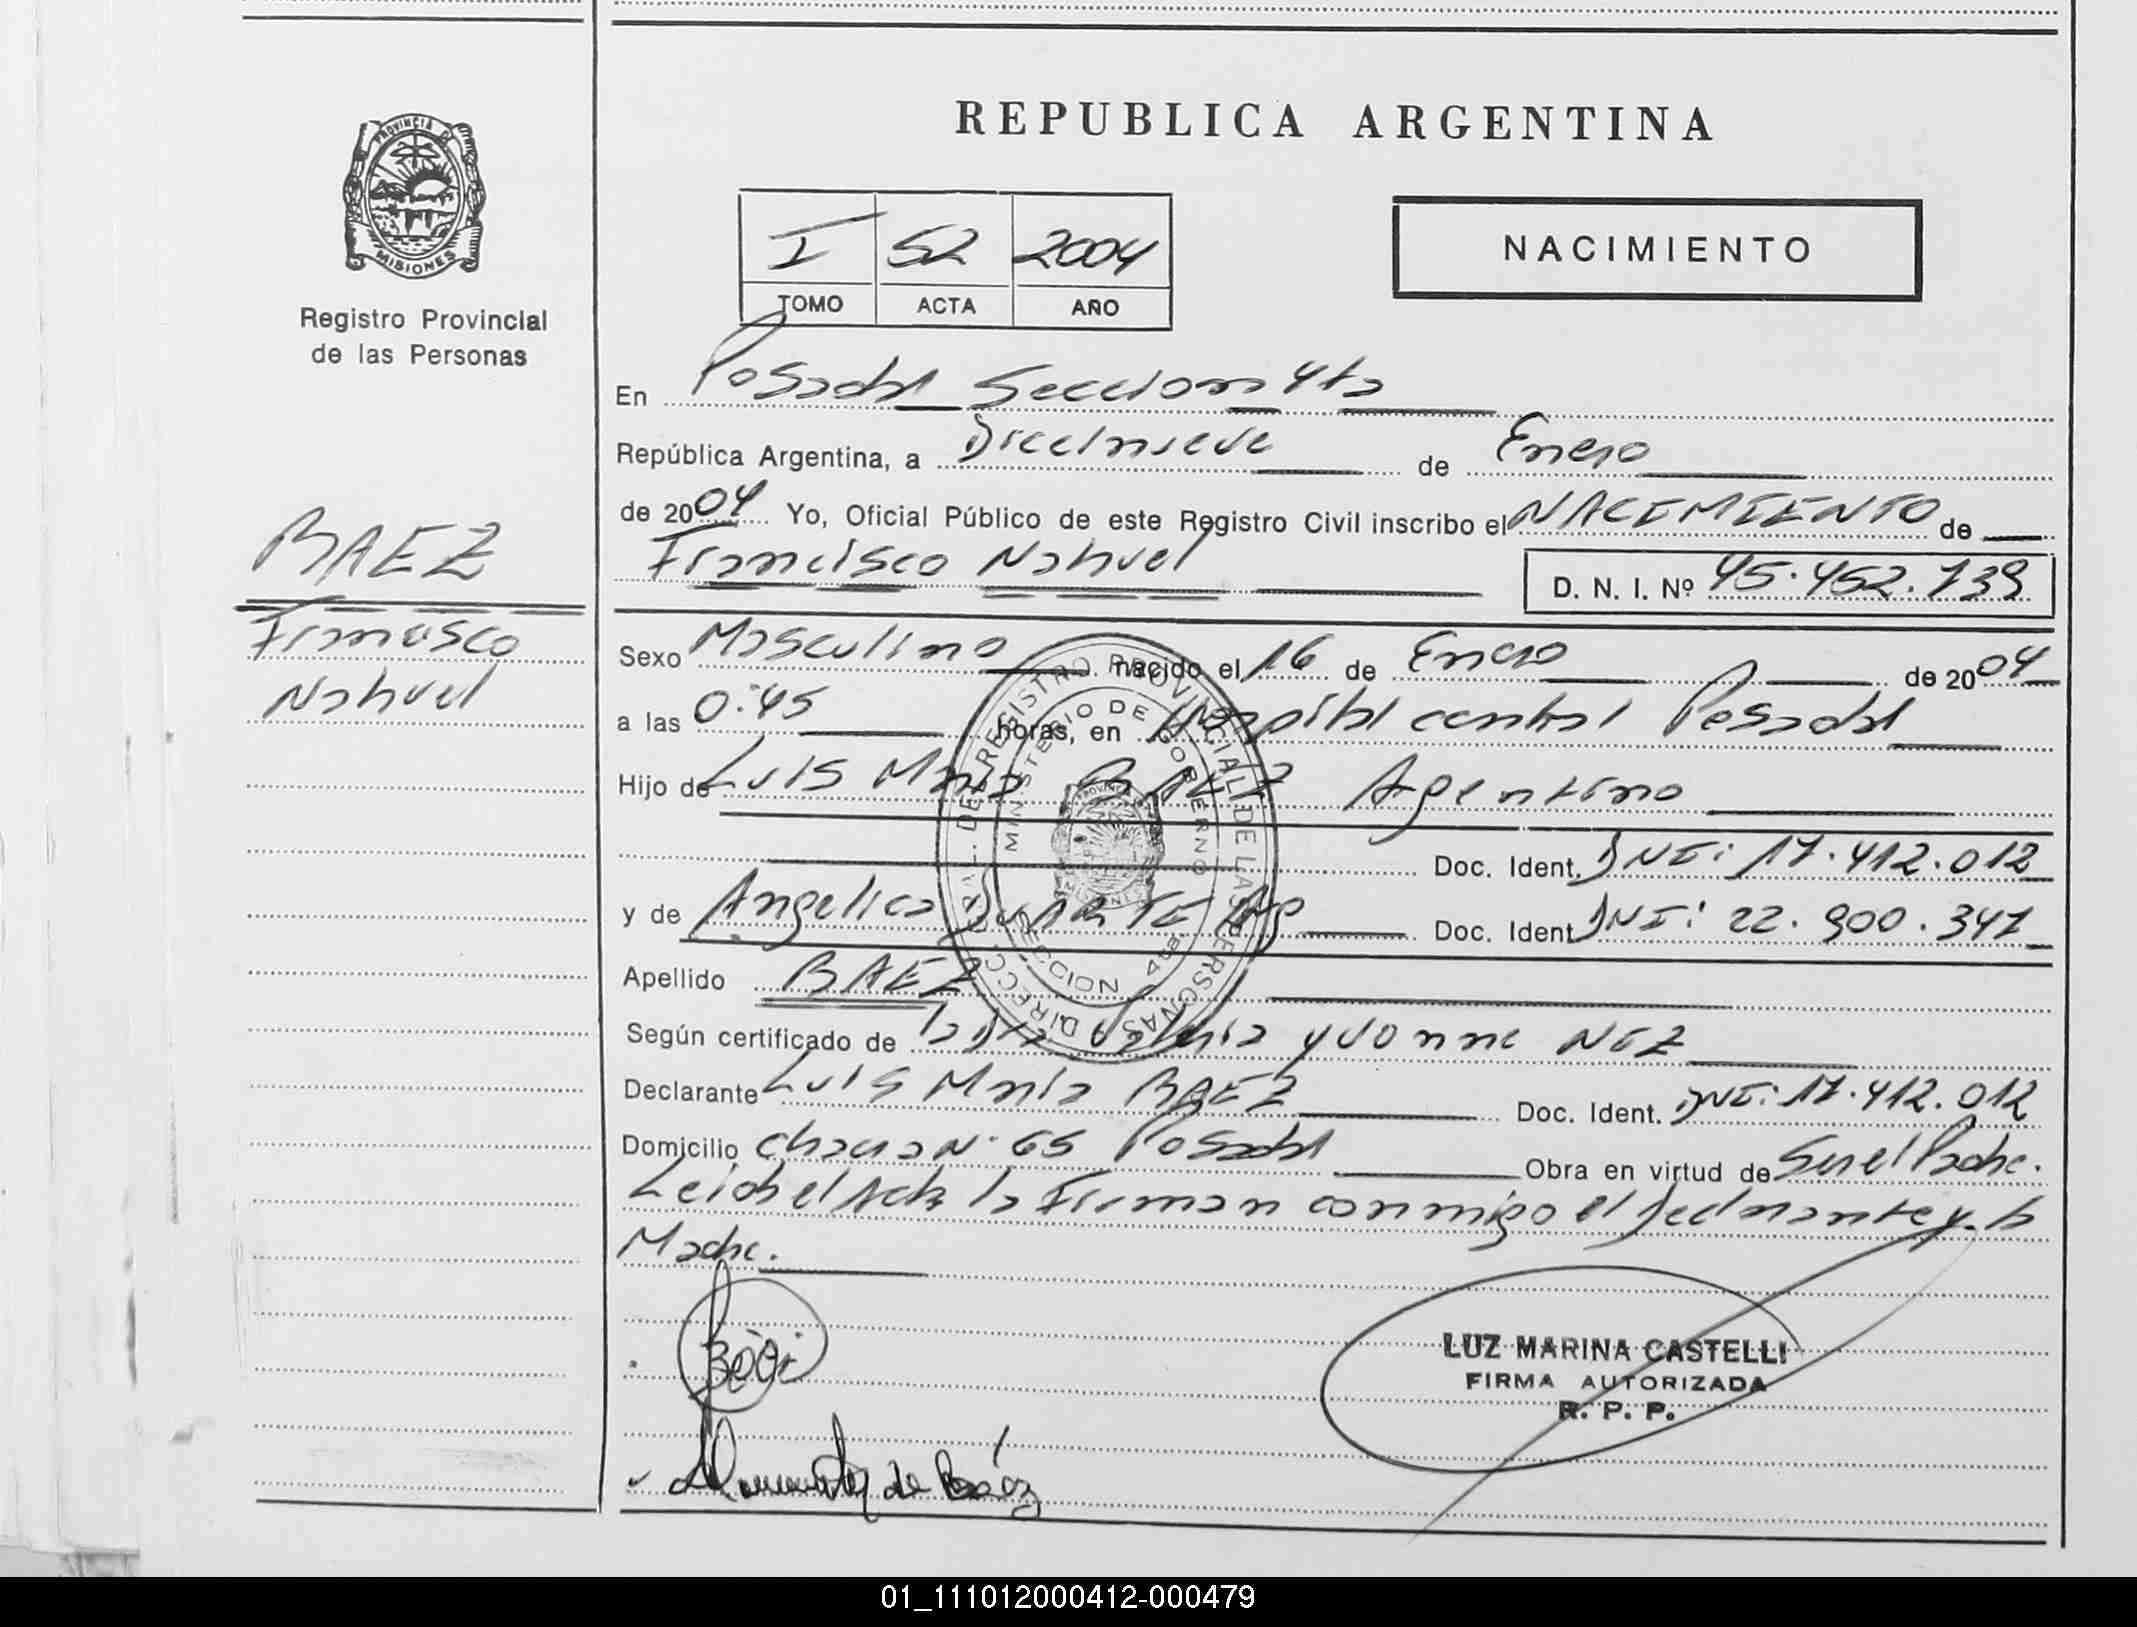 REPUBLICA ARGENTINA
PROVINCIA DE
MISIONES
Registro Provincial
de las Personas
I 52 2004
TOMO ACTA AÑO
NACIMIENTO
En Posadas Seccion 4ta
República Argentina, a Diecinueve de Enero
de 2004 Yo, Oficial Público de este Registro Civil inscribo el NACIMIENTO de
Francisco Nahuel D. N. I. Nº 45.452.739
BAEZ
Francisco
Nahuel
Sexo Masculino nacido el 16 de Enero de 2004
a las 0:45 horas, en Hospital central Posadas
Hijo de Luis Maria BAEZ Argentino
Doc. Ident. DNI: 17.412.012
y de Angelica DUARTE Doc. Ident DNI: 22.900.347
Apellido BAEZ
Según certificado de la Dra. Valeria yvonne NEZ
Declarante Luis Maria BAEZ Doc. Ident. DNI: 17.412.012
Domicilio chacra N° 65 Posadas Obra en virtud de Ser el Padre.
Leida el Acta la Firman conmigo el declarante y la
Madre.
DIRECC. GRAL. DEL REGISTRO PROVINCIAL DE LAS PERSONAS
MINISTERIO DE GOBIERNO
SECCION 4ta.
LUZ MARINA CASTELLI
FIRMA AUTORIZADA
R. P. P.
de Baéz
01_111012000412-000479